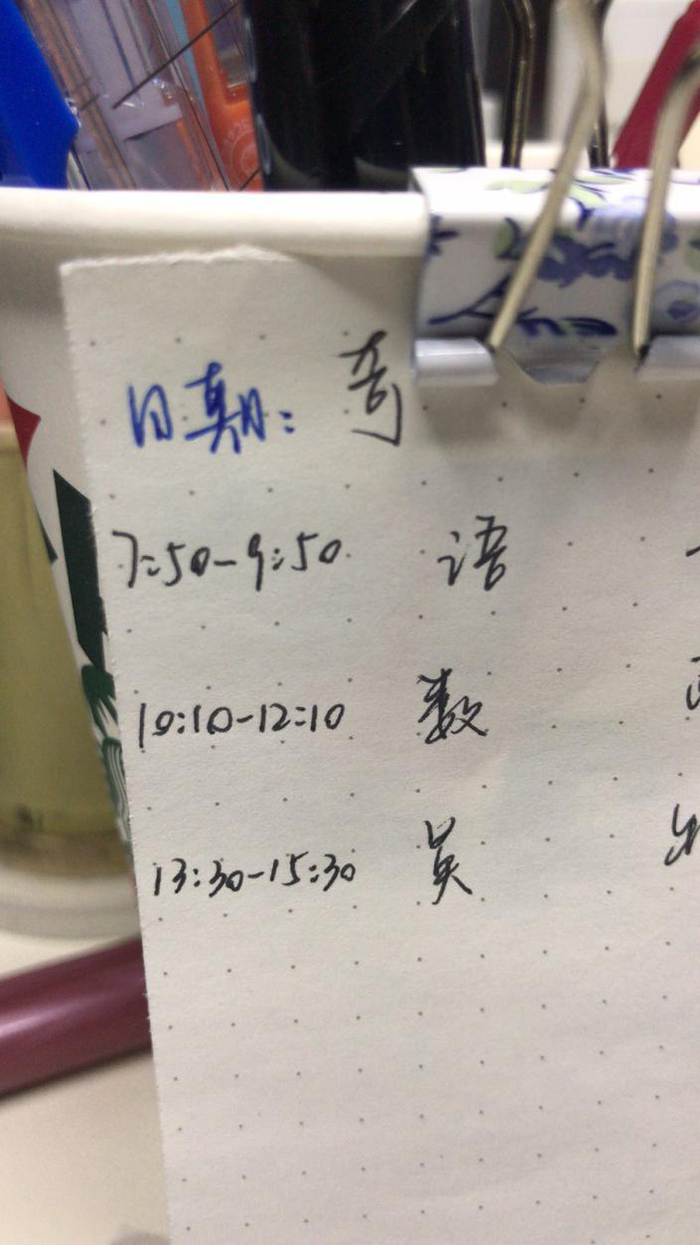 日期: 奇
7:50-9:50 语
10:10-12:10 数
13:30-15:30 英